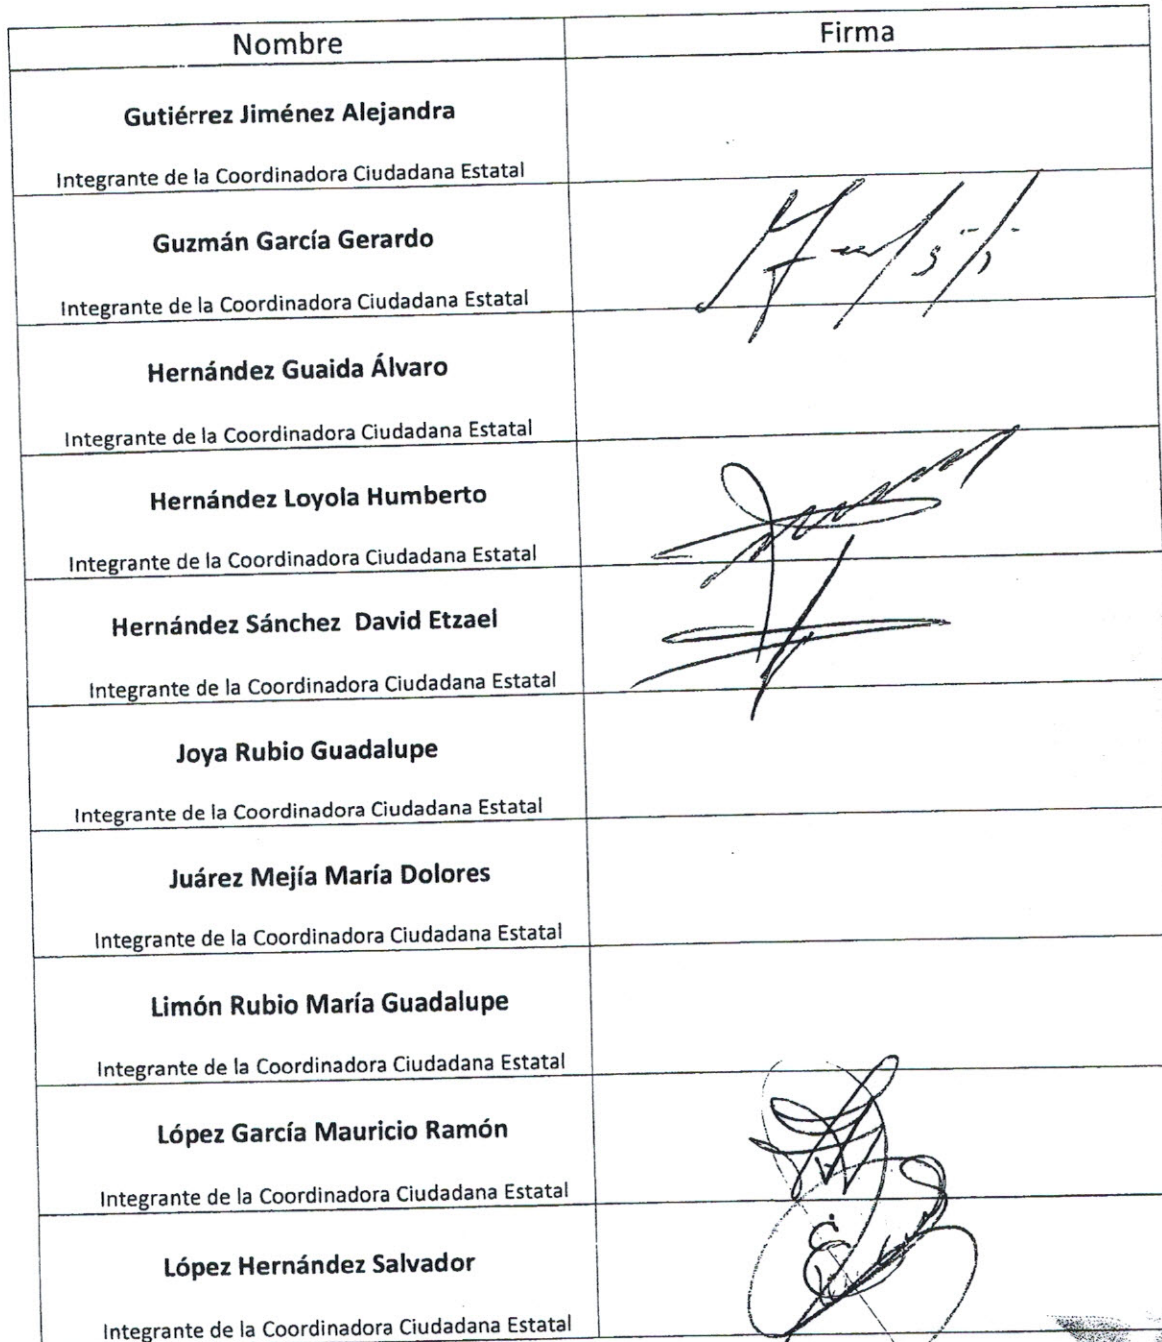 Nombre Firma
Gutiérrez Jiménez Alejandra
Integrante de la Coordinadora Ciudadana Estatal
Guzmán García Gerardo
Integrante de la Coordinadora Ciudadana Estatal
Hernández Guaida Álvaro
Integrante de la Coordinadora Ciudadana Estatal
Hernández Loyola Humberto
Integrante de la Coordinadora Ciudadana Estatal
Hernández Sánchez David Etzael
Integrante de la Coordinadora Ciudadana Estatal
Joya Rubio Guadalupe
Integrante de la Coordinadora Ciudadana Estatal
Juárez Mejía María Dolores
Integrante de la Coordinadora Ciudadana Estatal
Limón Rubio María Guadalupe
Integrante de la Coordinadora Ciudadana Estatal
López García Mauricio Ramón
Integrante de la Coordinadora Ciudadana Estatal
López Hernández Salvador
Integrante de la Coordinadora Ciudadana Estatal